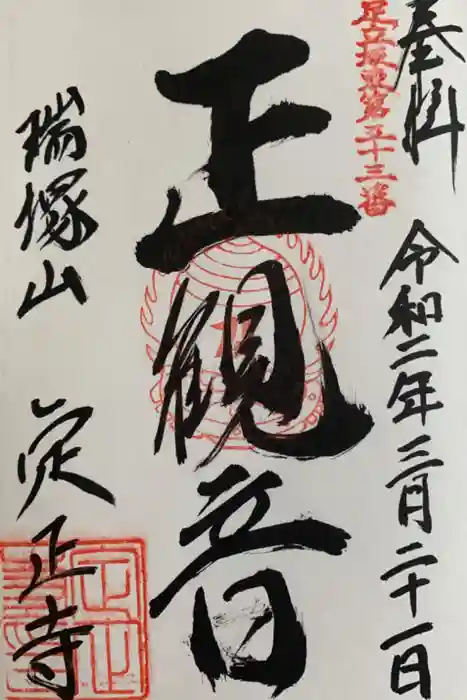 奉拝
足立坂東第五十三番
令和二年三月二十一日
正観音
瑞塚山
定正寺